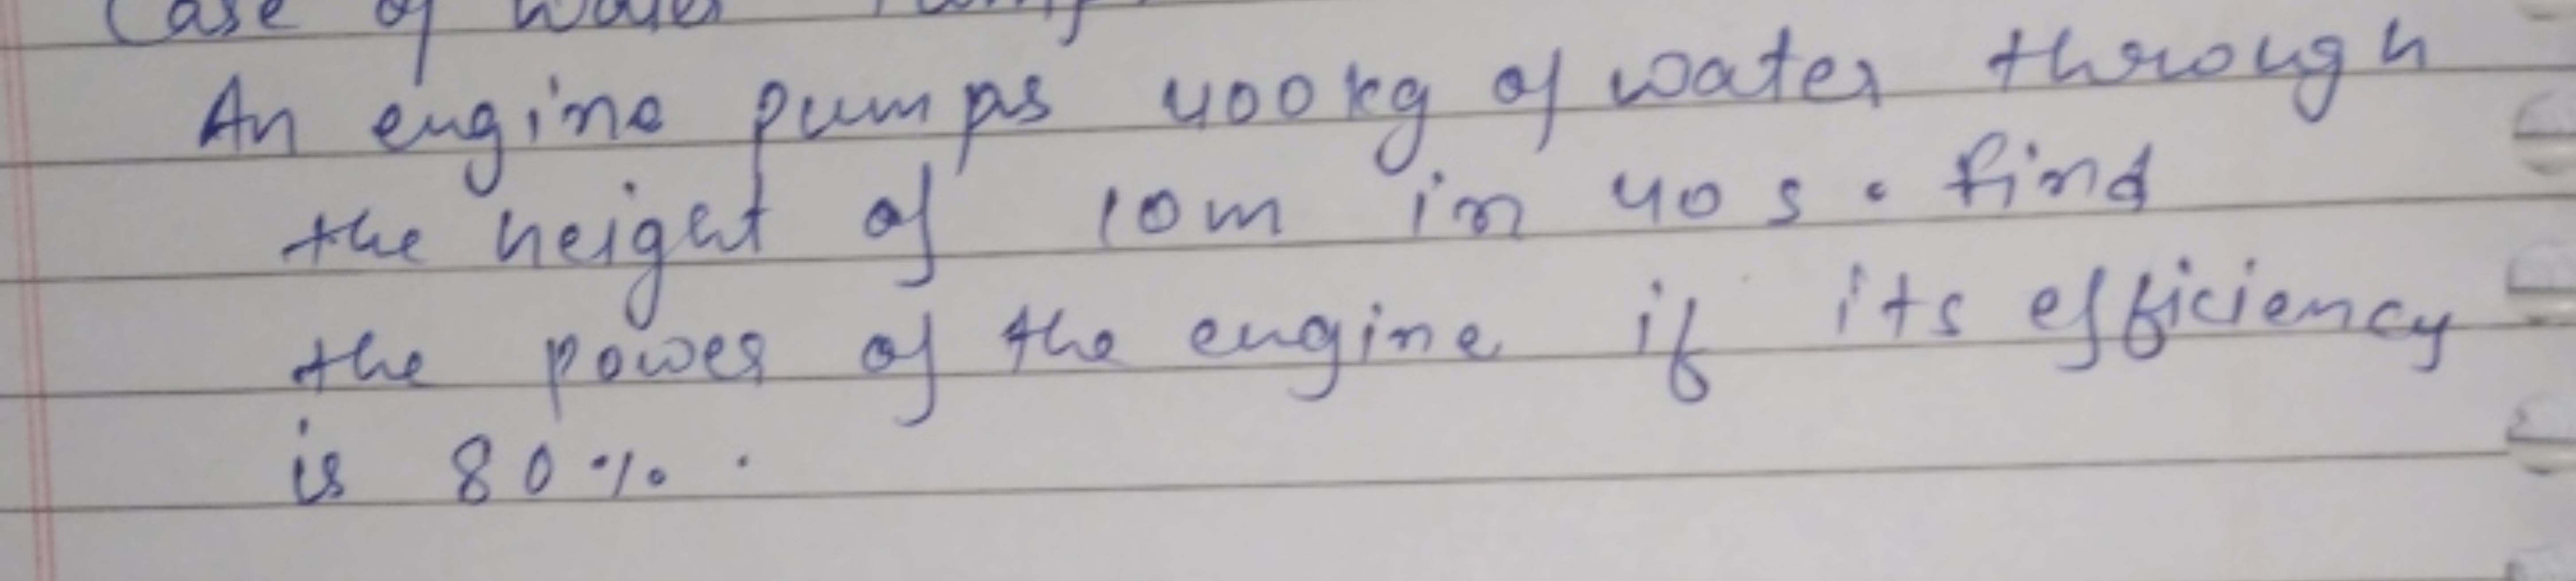 Case of water
An engine pumps 400kg of water through
the height of 10m in 40 s. find
the power of the engine if its efficiency
is 80%.